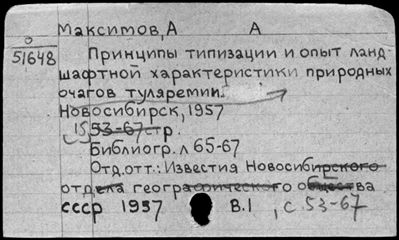 Максимов, А А
0
51648
Принципы типизации и опыт ланд-
шафтной характеристики природных
очагов туляремии.
Новосибирск, 1957
15 53-67 стр.
Библиогр. л 65-67
Отд. отт.: Известия Новосибирского
отдела географического общества
СССР 1957 В.1, с. 53-67